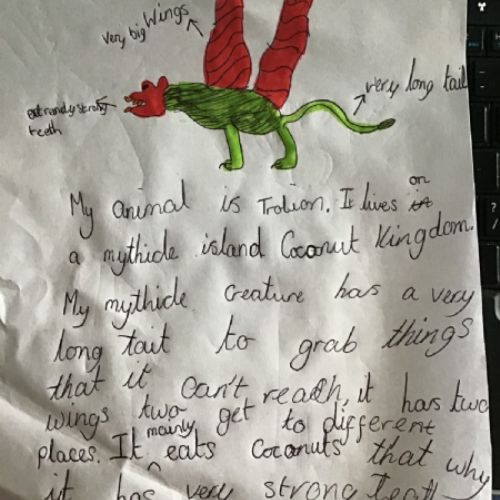 very big wings
very long tail
extremly strong
teeth
My animal is Trolion. It lives on
a mythicle island Coconut Kingdom.
My mythicle creature has a very
long tail to grab things
that it can't reach, it has two
wings two get to different
places. It mainly eats Coconuts that why
it has very strong Teeth